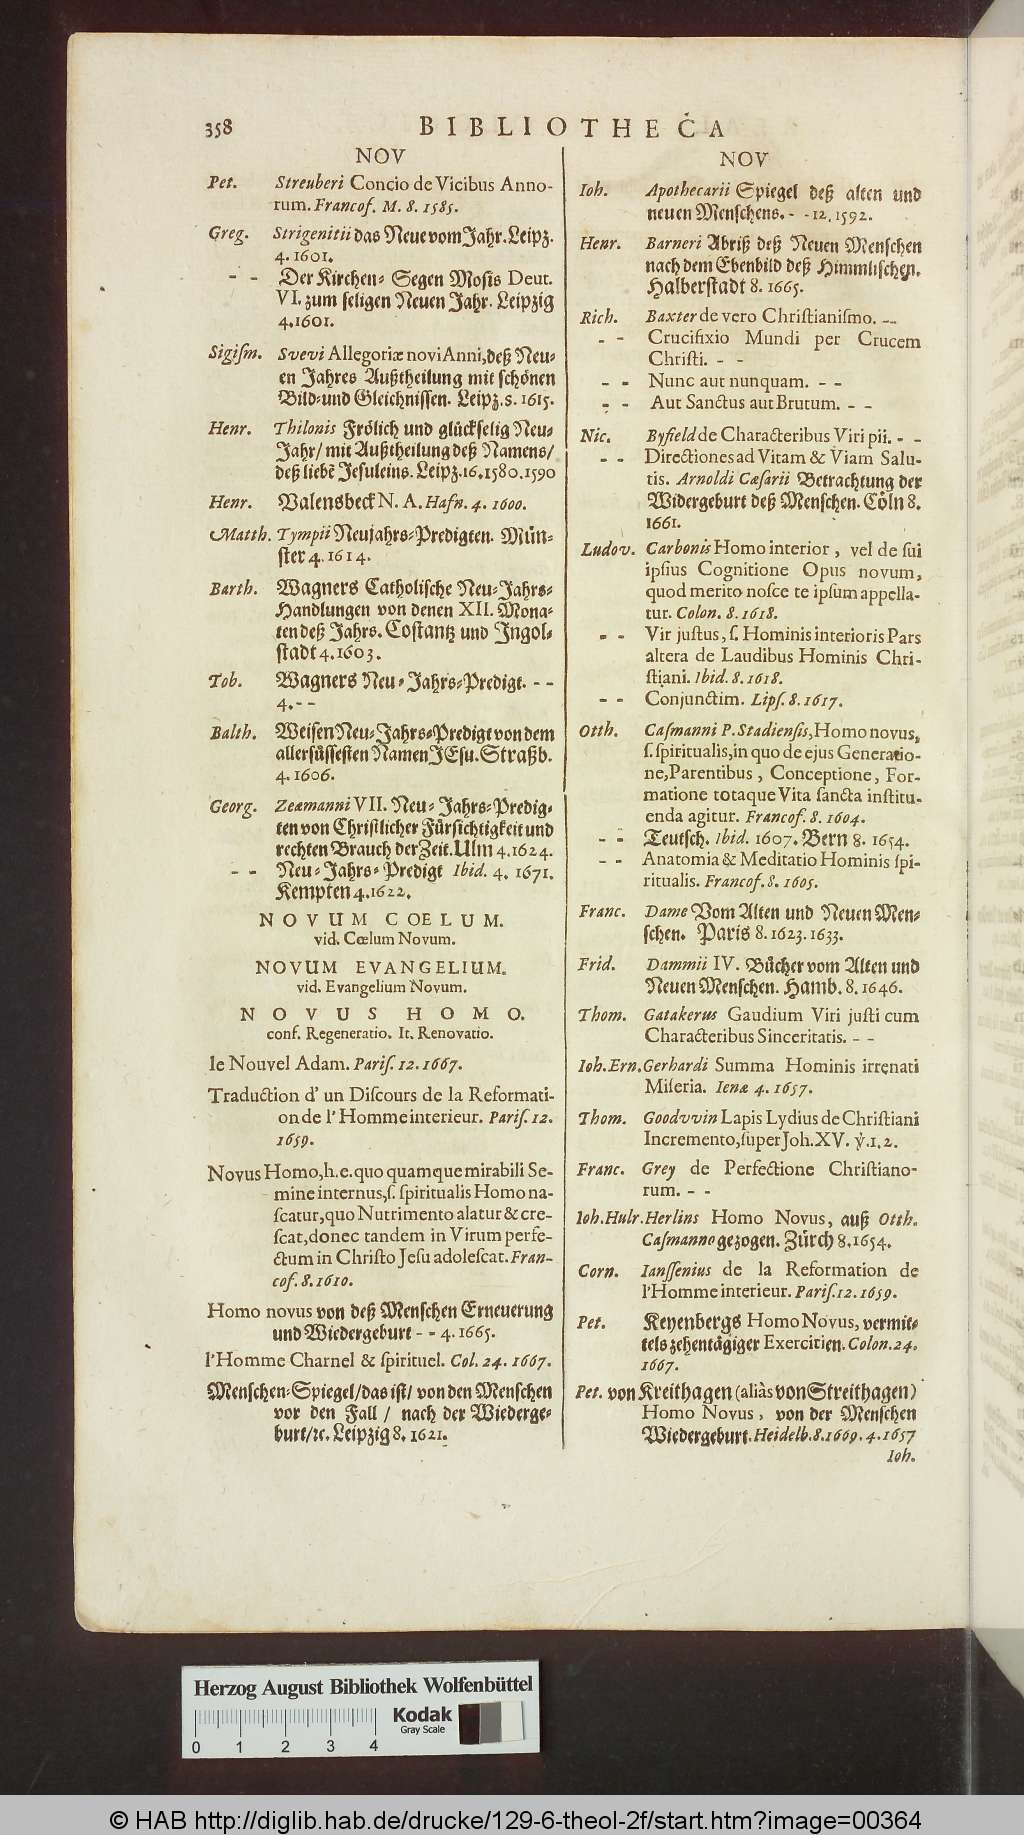 358
BIBLIOTHECA
NOV
Pet. Streuberi Concio de Vicibus Anno-
rum. Francof. M. 8. 1585.
Greg. Strigenitii das Neue vom Jahr. Leipz.
4. 1601.
- - Der Kirchen- Segen Mosis Deut.
VI. zum seligen Neuen Jahr. Leipzig
4. 1601.
Sigiſm. Svevi Allegoriæ novi Anni, deß Neu-
en Jahres Außtheilung mit schönen
Bild- und Gleichnissen. Leipz. 8. 1615.
Henr. Thilonis Frölich und glückselig Neu-
Jahr/ mit Außtheilung deß Namens/
deß liebẽ Jesuleins. Leipz. 16. 1580. 1590
Henr. Valensbeck N. A. Hafn. 4. 1600.
Matth. Tympii Neujahrs-Predigten. Mün-
ster 4. 1614.
Barth. Wagners Catholische Neu-Jahrs-
Handlungen von denen XII. Mona-
ten deß Jahrs. Costantz und Ingol-
stadt 4. 1603.
Tob. Wagners Neu-Jahrs-Predigt. - -
4. - -
Balth. Weisen Neu-Jahrs-Predigt von dem
allersüssesten Namen JEsu. Straßb.
4. 1606.
Georg. Zeæmanni VII. Neu-Jahrs-Predig-
ten von Christlicher Fürsichtigkeit und
rechten Brauch der Zeit. Ulm 4. 1624.
- - Neu-Jahrs-Predigt Ibid. 4. 1671.
Kempten 4. 1622.
NOVUM COELUM.
vid. Cœlum Novum.
NOVUM EVANGELIUM.
vid. Evangelium Novum.
NOVUS HOMO.
conf. Regeneratio. It. Renovatio.
le Nouvel Adam. Pariſ. 12. 1667.
Traduction d' un Diſcours de la Reformati-
on de l' Homme interieur. Pariſ. 12.
1659.
Novus Homo, h. e. quo quamque mirabili Se-
mine internus, ſ. ſpiritualis Homo na-
ſcatur, quo Nutrimento alatur & cre-
ſcat, donec tandem in Virum perfe-
ctum in Chriſto Jeſu adoleſcat. Fran-
cof. 8. 1610.
Homo novus von deß Menschen Erneuerung
und Wiedergeburt - - 4. 1665.
l'Homme Charnel & ſpirituel. Col. 24. 1667.
Menschen-Spiegel/ das ist/ von den Menschen
vor den Fall / nach der Wiederge-
burt/ ꝛc. Leipzig 8. 1621.
NOV
Ioh. Apothecarii Spiegel deß alten und
neuen Menschens. - - 12. 1592.
Henr. Barneri Abriß deß Neuen Menschen
nach dem Ebenbild deß Himmlischen.
Halberstadt 8. 1665.
Rich. Baxter de vero Chriſtianiſmo. - -
- - Crucifixio Mundi per Crucem
Chriſti. - -
- - Nunc aut nunquam. - -
- - Aut Sanctus aut Brutum. - -
Nic. Byfield de Characteribus Viri pii. - -
- - Directiones ad Vitam & Viam Salu-
tis. Arnoldi Cæſarii Betrachtung der
Widergeburt deß Menschen. Cöln 8.
1661.
Ludov. Carbonis Homo interior, vel de ſui
ipſius Cognitione Opus novum,
quod merito noſce te ipſum appella-
tur. Colon. 8. 1618.
- - Vir juſtus, ſ. Hominis interioris Pars
altera de Laudibus Hominis Chri-
ſtiani. Ibid. 8. 1618.
- - Conjunctim. Lipſ. 8. 1617.
Otth. Caſmanni P. Stadienſis, Homo novus,
ſ. ſpiritualis, in quo de ejus Generatio-
ne, Parentibus, Conceptione, For-
matione totaque Vita ſancta inſtitu-
enda agitur. Francof. 8. 1604.
- - Teutsch. Ibid. 1607. Bern 8. 1654.
- - Anatomia & Meditatio Hominis ſpi-
ritualis. Francof. 8. 1605.
Franc. Dame Vom Alten und Neuen Men-
schen. Paris 8. 1623. 1633.
Frid. Dammii IV. Bücher vom Alten und
Neuen Menschen. Hamb. 8. 1646.
Thom. Gatakerus Gaudium Viri juſti cum
Characteribus Sinceritatis. - -
Ioh. Ern. Gerhardi Summa Hominis irrenati
Miſeria. Ienæ 4. 1657.
Thom. Goodvvin Lapis Lydius de Chriſtiani
Incremento, ſuper Joh. XV. ℣. 1. 2.
Franc. Grey de Perfectione Chriſtiano-
rum. - -
Ioh. Hulr. Herlins Homo Novus, auß Otth.
Caſmanno gezogen. Zürch 8. 1654.
Corn. Ianſſenius de la Reformation de
l'Homme interieur. Pariſ. 12. 1659.
Pet. Keyenbergs Homo Novus, vermit-
tels zehentägiger Exercitien. Colon. 24.
1667.
Pet. von Kreithagen (aliàs von Streithagen)
Homo Novus, von der Menschen
Wiedergeburt. Heidelb. 8. 1669. 4. 1657
Ioh.
Herzog August Bibliothek Wolfenbüttel
Kodak
Gray Scale
0 1 2 3 4
© HAB http://diglib.hab.de/drucke/129-6-theol-2f/start.htm?image=00364